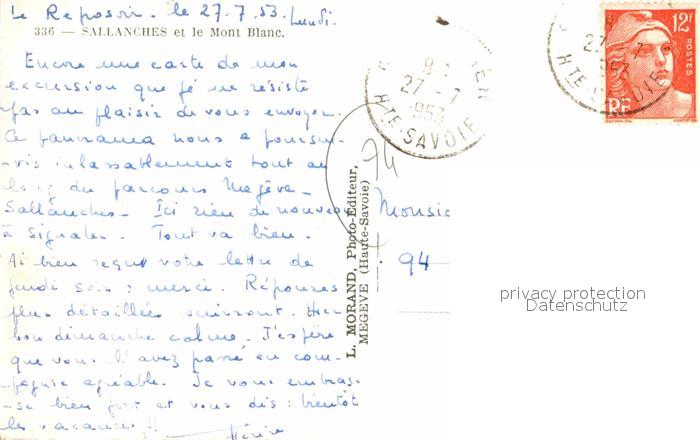 Le Reposoir. le 27.7.53. Lundi.
336 — SALLANCHES et le Mont Blanc.
Encore une carte de mon
excursion que je ne résiste
pas au plaisir de vous envoyer.
Ce panorama nous a poursui-
-vis inlassablement tout au
long du parcours Megève-
Sallanches. Ici rien de nouveau
à signaler. Tout va bien.
Ai bien reçu votre lettre de
jeudi soir : merci. Réponses
plus détaillées suivront. Hier
bon dimanche calme. J'espère
que vous l'avez passé en com-
-pagnie agréable. Je vous embras-
-se bien fort et vous dis : bientôt
les vacances !!
L. MORAND, Photo-Editeur,
MEGÈVE (Haute-Savoie)
74
27 - 7
1953
HTE-SAVOIE
12F
POSTES
RF
27 - 7
1953
HTE-SAVOIE
Monsie
94
privacy protection
Datenschutz